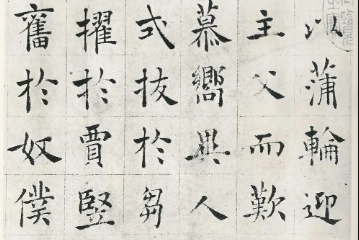 以蒲輪迎
主父而歎
慕嚮異人
式拔於芻
擢於賈豎
奮於奴僕